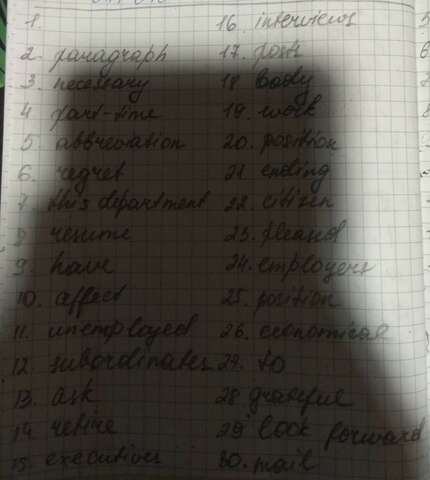 1.
2. paragraph
3. necessary
4. part-time
5. abbreviation
6. regret
7. this department
8. resume
9. have
10. affect
11. unemployed
12. subordinates
13. ask
14. retire
15. executives
16. interviews
17. post
18. body
19. work
20. position
21. ending
22. citizen
23. pleased
24. employers
25. position
26. economical
27. to
28. grateful
29. look forward
30. mail